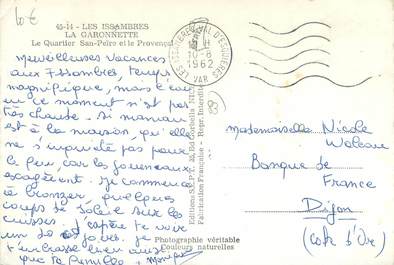 10€
45-14 - LES ISSAMBRES
LA GARONNETTE
Le Quartier San-Peïre et le Provençal
Merveilleuses vacances
aux Issambres, temps
magnifique, mais l'eau
en ce moment n'est pas
très chaude. Si maman
est à la maison, qu'elle
ne s'inquiète pas pour
le feu, car les journaux
exagèrent. Je commence
à bronzer, quelques
coups de soleil sur les
cuisses. J'espère te voir
un de ces jours. Je
t'embrasse bien ainsi
que ta famille. Monique
LES ISSAMBRES VAL D'ESQUIERES
10-8
1962
VAR
83
Editions S.E.P.T. 35, Bd Gorbella NICE
Fabrication Française - Repr. Interdite
Photographie véritable
Couleurs naturelles
Mademoiselle Nicole
Banque de
France
Dijon
(Côte d'Or)